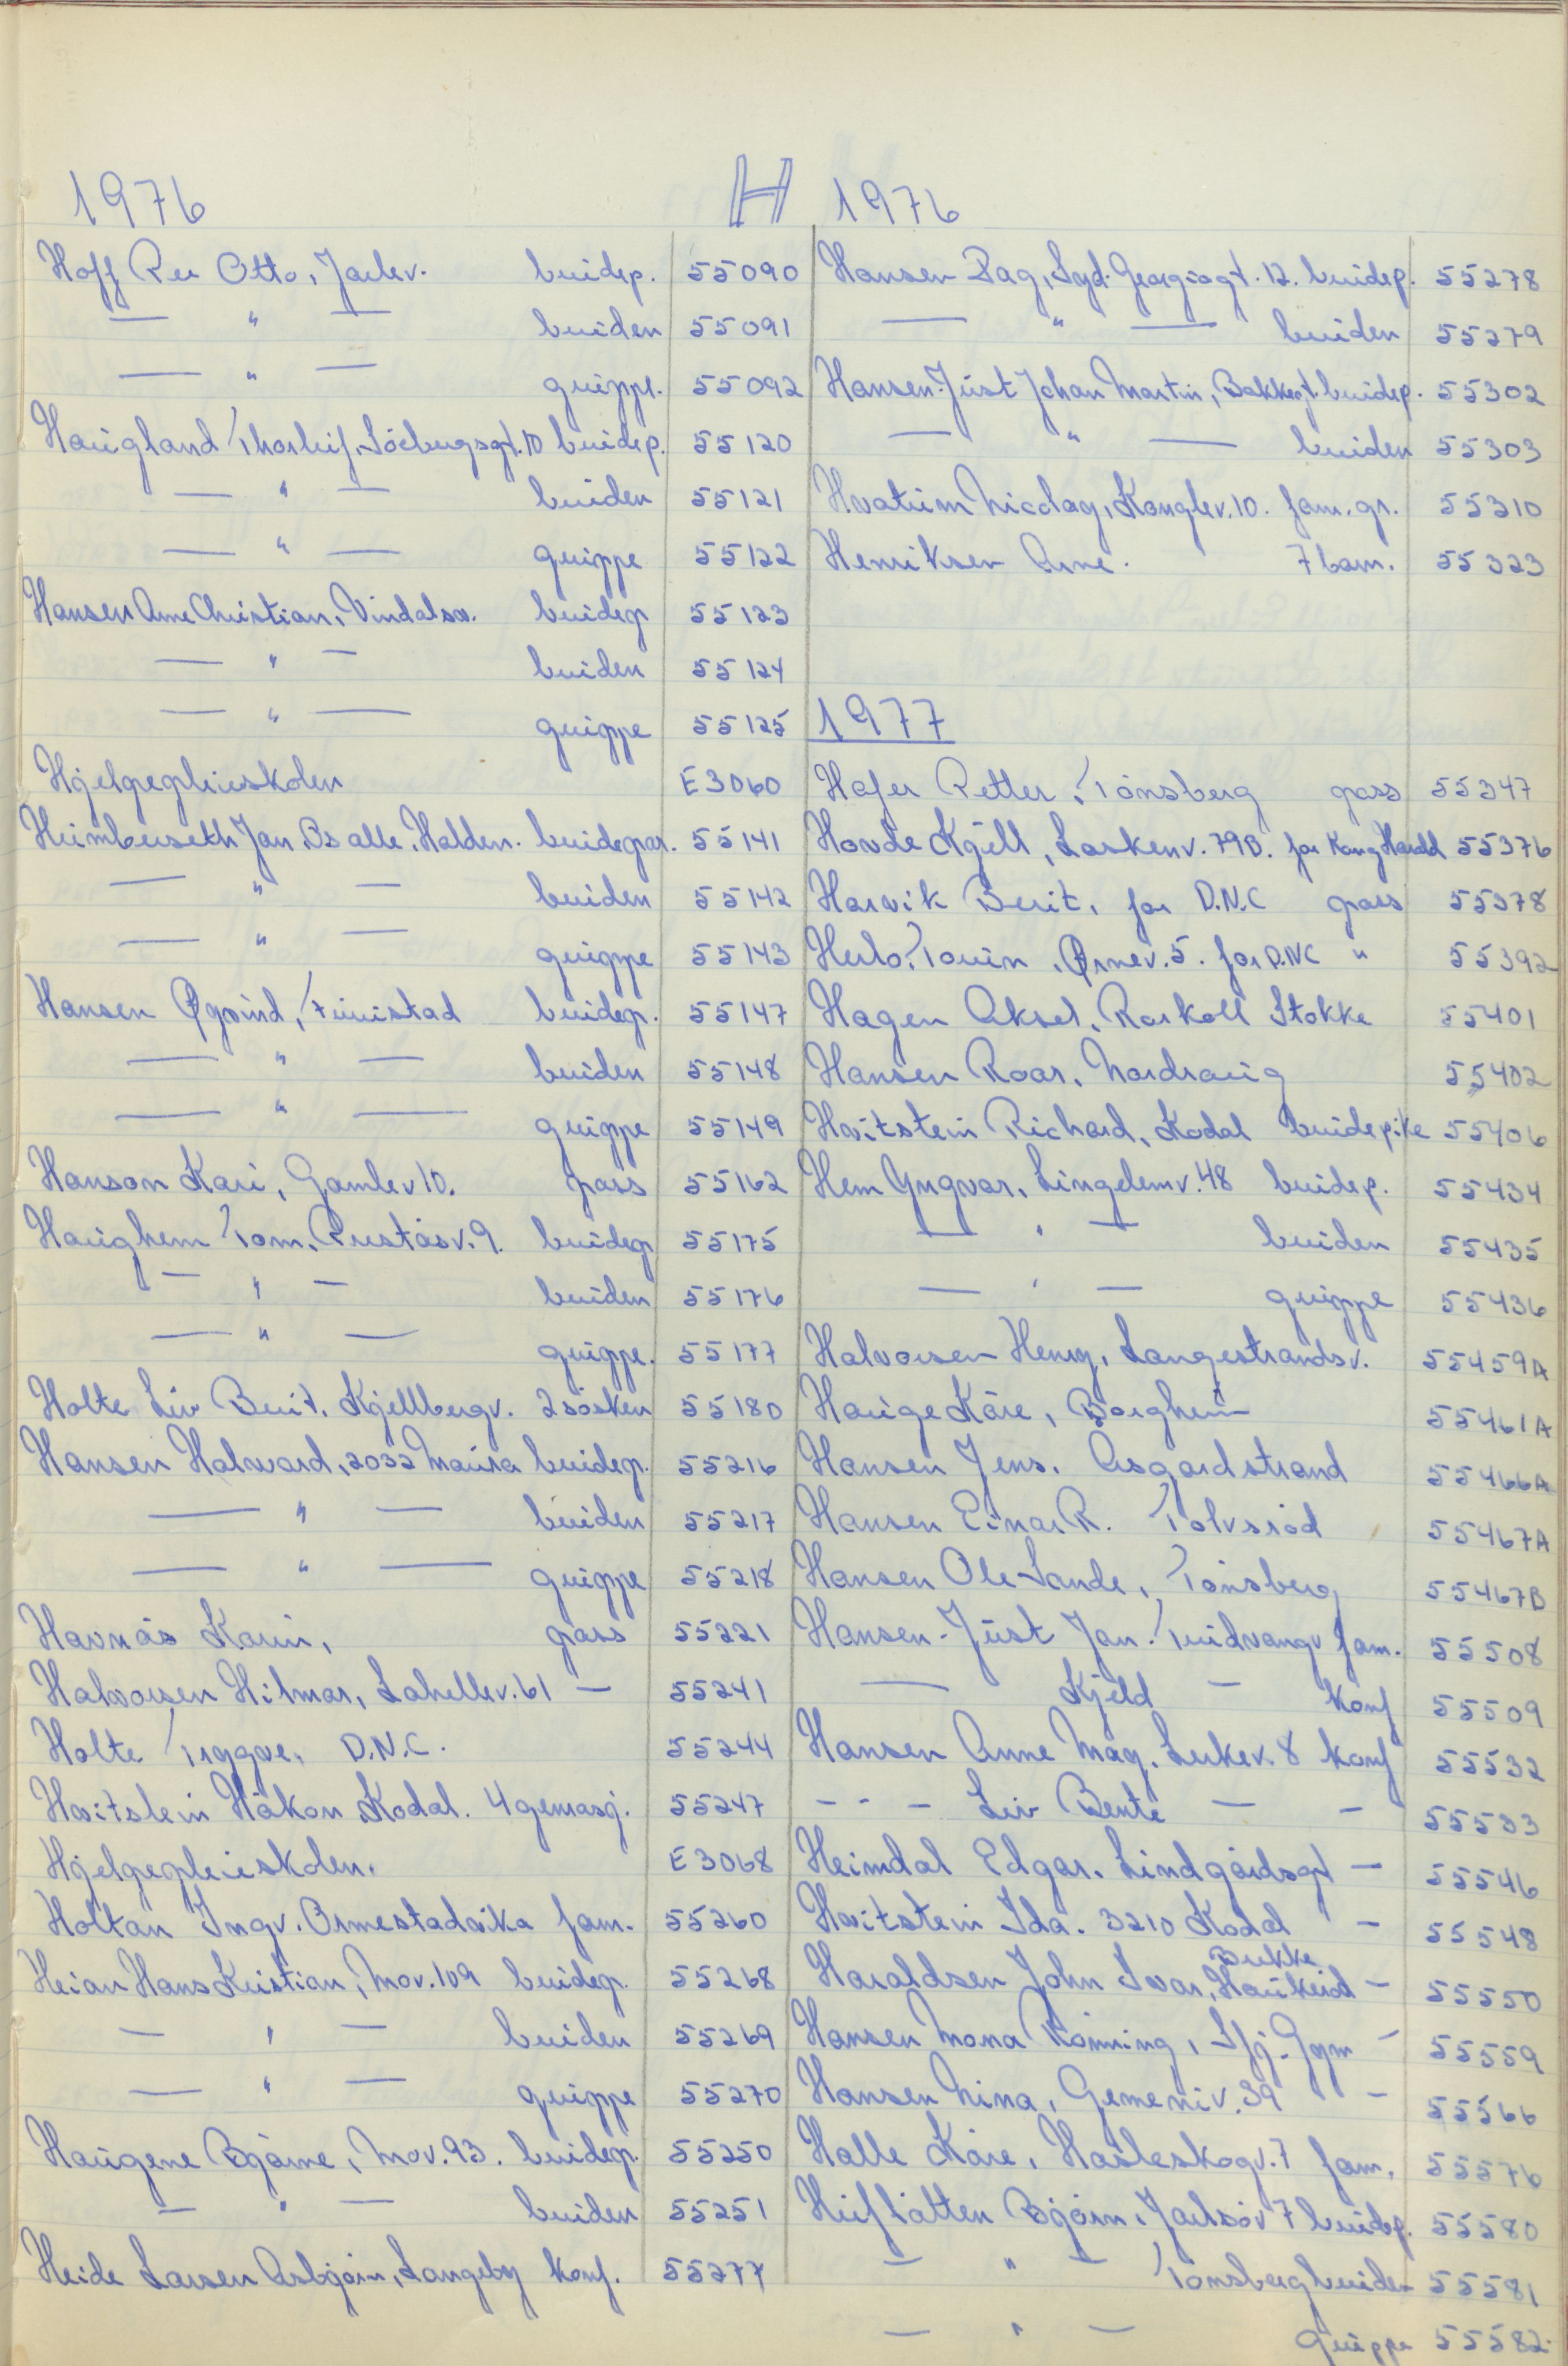 1976
H
Hoff Per Otto, Jarlev. brudep. 55090
— " — bruden 55091
— " — gruppe. 55092
Haugland Thorleif, Söebergsgt. 10 brudep. 55120
— " — bruden 55121
— " — gruppe 55122
Hansen Arne Christian, Vindalsv. brudep 55123
— " — bruden 55124
— " — gruppe 55125
Hjelpepleieskolen E3060
Heimberseth Jan, Bs alle, Halden. brudepar. 55141
— " — bruden 55142
— " — gruppe 55143
Hansen Øyvind, brudep. 55147
— " — bruden 55148
— " — gruppe 55149
Hanson Kari, Gamlev 10. pass 55162
Haughem Tom, Preståsv. 9. brudep 55175
— " — bruden 55176
— " — gruppe. 55177
Holte Liv Berit, Kjellbergv. 2 søsken 55180
Hansen Halvard, 2032 Maura brudep. 55216
— " — bruden 55217
— " — gruppe 55218
Havnås Karin, pass 55221
Halvorsen Hilmar, Lahellev. 61 — 55241
Holte Tryggve, D.N.C. 55244
Hvitstein Håkon Kodal. 4 generasj. 55247
Hjelpepleieskolen. E3068
Holtan Ingv. Ormestadvika fam. 55260
Heian Hans Kristian, Mov. 109 brudep. 55268
— " — bruden 55269
— " — gruppe 55270
Haugene Bjarne, Mov. 93. brudep. 55250
— " — bruden 55251
Heide Larsen Asbjørn, Langeby konf. 55277
1976
Hansen Dag, Syd. Georgsgt. 12. brudep. 55278
— " — bruden 55279
Hansen-Just Johan Martin, Bakkegt. brudep. 55302
— " — bruden 55303
Hvatum Nicolay, Konglev. 10. fam. gr. 55310
Henriksen Arne. 7 barn. 55323
1977
Hafer Petter, Tønsberg pass 55347
Hovde Kjell, Laskenv. 79B. for Kong Harald 55376
Harvik Berit, for D.N.C pass 55378
Herlo, Ørnev. 5. for D.N.C " 55392
Hagen Aksel, Raskoll Stokke 55401
Hansen Roar, Nordraug 55402
Hvitstein Richard, Kodal brudepike 55406
Hem Yngvar, Lingelemv. 48 brudep. 55434
— " — bruden 55435
— " — gruppe 55436
Halvorsen Henry, Langestrandsv. 55459A
Hauge Kåre, Borgheim 55461A
Hansen Jens. Åsgårdstrand 55466A
Hansen Einar R. Tolvsrød 55467A
Hansen Ole Lande, Tønsberg 55467B
Hansen-Just Jan. Trudvangv fam. 55508
— Kjeld — konf 55509
Hansen Anne Mag. Lerkev. 8 konf 55532
- - - Liv Bente — - 55533
Heimdal Edgar. Lindgårdsgt — 55546
Hvitstein Ida. 3210 Kodal - 55548
Haraldsen John Ivar, Haukerød Bekke - 55550
Hansen Mona Rønning, Sfj. Gym - 55559
Hansen Nina, Gemeniv. 39 - 55566
Halle Kåre, Hasleskogv. 7 fam. 55576
Heifløtten Bjørn, Jarlsøv 7 brudep. 55580
— " — Tønsberg bruden 55581
— " — gruppe 55582